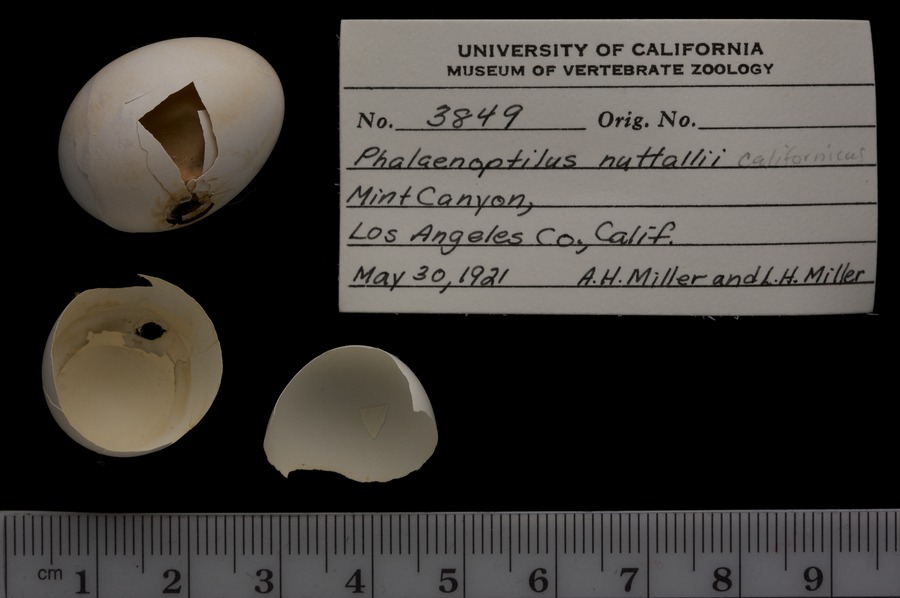 UNIVERSITY OF CALIFORNIA
MUSEUM OF VERTEBRATE ZOOLOGY
No. 3849 Orig. No.
Phalaenoptilus nuttallii californicus
Mint Canyon,
Los Angeles Co., Calif.
May 30, 1921 A.H. Miller and L.H. Miller
cm 1 2 3 4 5 6 7 8 9